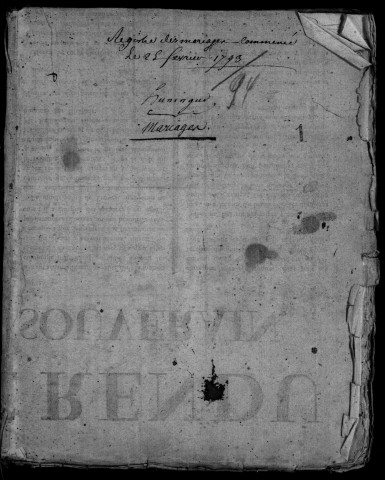 Registre des mariages commencé
Le 25 fevrier 1793
94
huningue
Mariages.
1
SOUVERAIN
RENDU